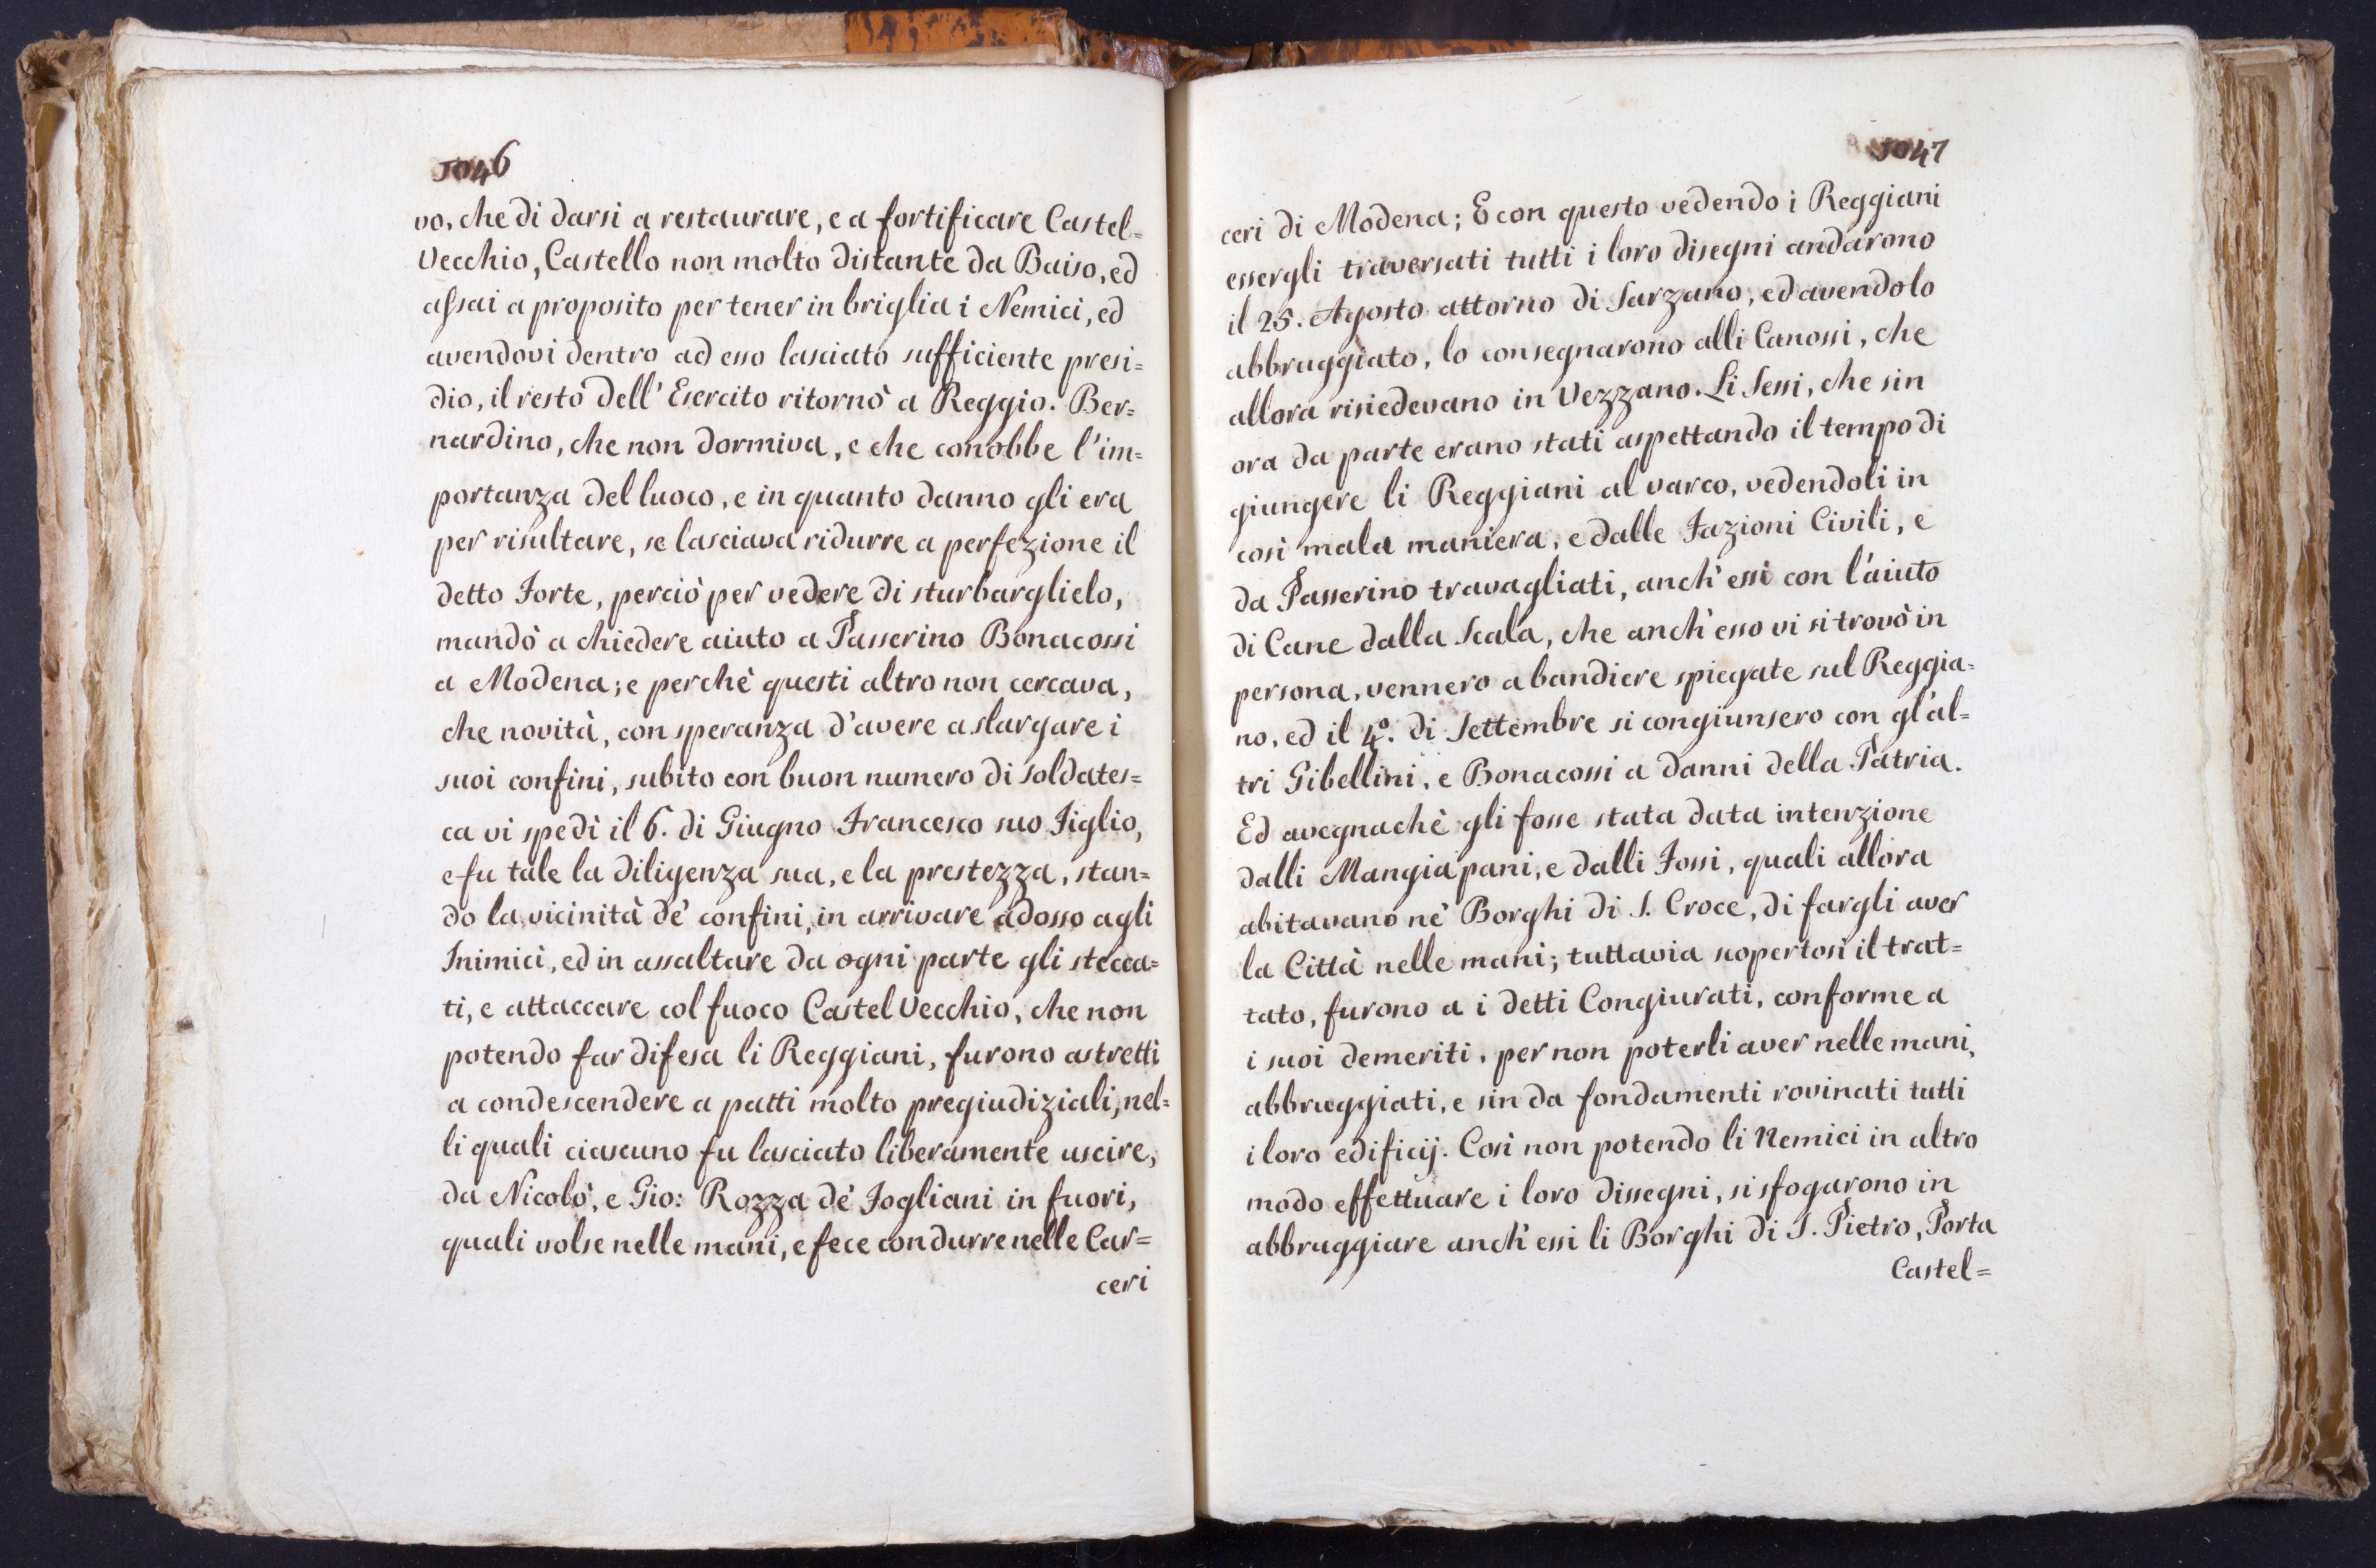 1046
vo, che di darsi a restaurare, e a fortificare Castel=
Vecchio, Castello non molto distante da Baiso, ed
assai a proposito per tener in briglia i Nemici, ed
avendovi dentro ad esso lasciato sufficiente presi=
dio, il resto dell' Esercito ritornò a Reggio. Ber=
nardino, che non dormiva, e che conobbe l'im=
portanza del luoco, e in quanto danno gli era
per risultare, se lasciava ridurre a perfezione il
detto Forte, perciò per vedere di sturbarglielo,
mandò a chiedere aiuto a Passerino Bonacossi
a Modena; e perchè questi altro non cercava,
che novità, con speranza d'avere a slargare i
suoi confini, subito con buon numero di soldates=
ca vi spedì il 6. di Giugno Francesco suo Figlio,
e fu tale la diligenza sua, e la prestezza, stan=
do la vicinità de' confini, in arrivare adosso agli
Inimici, ed in assaltare da ogni parte gli stecca=
ti, e attaccare col fuoco Castel Vecchio, che non
potendo far difesa li Reggiani, furono astretti
a condescendere a patti molto pregiudiziali, nel=
li quali ciascuno fu lasciato liberamente uscire,
da Nicolò, e Gio: Rozza de' Fogliani in fuori,
quali volse nelle mani, e fece condurre nelle Car=
ceri
1047
ceri di Modena; E con questo vedendo i Reggiani
essergli traversati tutti i loro disegni andarono
il 25. Agosto attorno di Sarzano, ed avendolo
abbruggiato, lo consegnarono alli Canossi, che
allora risiedevano in Vezzano. Li Sessi, che sin
ora da parte erano stati aspettando il tempo di
giungere li Reggiani al varco, vedendoli in
così mala maniera, e dalle Fazioni Civili, e
da Passerino travagliati, anch' essi con l'aiuto
di Cane dalla Scala, che anch' esso vi si trovò in
persona, vennero a bandiere spiegate sul Reggia=
no, ed il 4º. di Settembre si congiunsero con gl'al=
tri Gibellini, e Bonacossi a danni della Patria.
Ed avegnachè gli fosse stata data intenzione
dalli Mangiapani, e dalli Fossi, quali allora
abitavano nè Borghi di S. Croce, di fargli aver
la Città nelle mani; tuttavia scopertosi il trat=
tato, furono a i detti Congiurati, conforme a
i suoi demeriti, per non poterli aver nelle mani,
abbruggiati, e sin da fondamenti rovinati tutti
i loro edificij. Così non potendo li Nemici in altro
modo effettuare i loro dissegni, si sfogarono in
abbruggiare anch' essi li Borghi di S. Pietro, Porta
Castel=